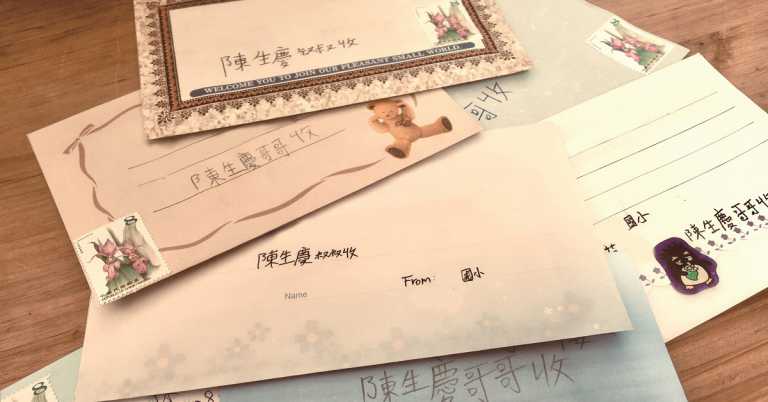 陳生慶叔叔收
WELCOME YOU TO JOIN OUR PLEASANT SMALL WORLD
收
陳生慶哥哥收
國小
陳生慶哥哥收
陳生慶叔叔收
From: 國小
Name
陳生慶哥哥收